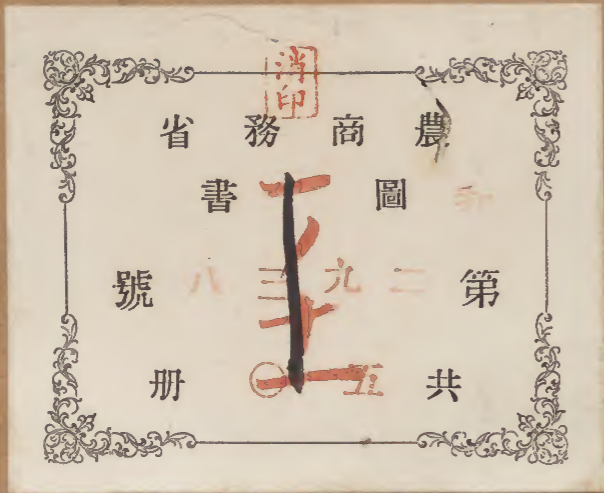 消印
農商務省
圖書
和
第二九三八號
共五〇册